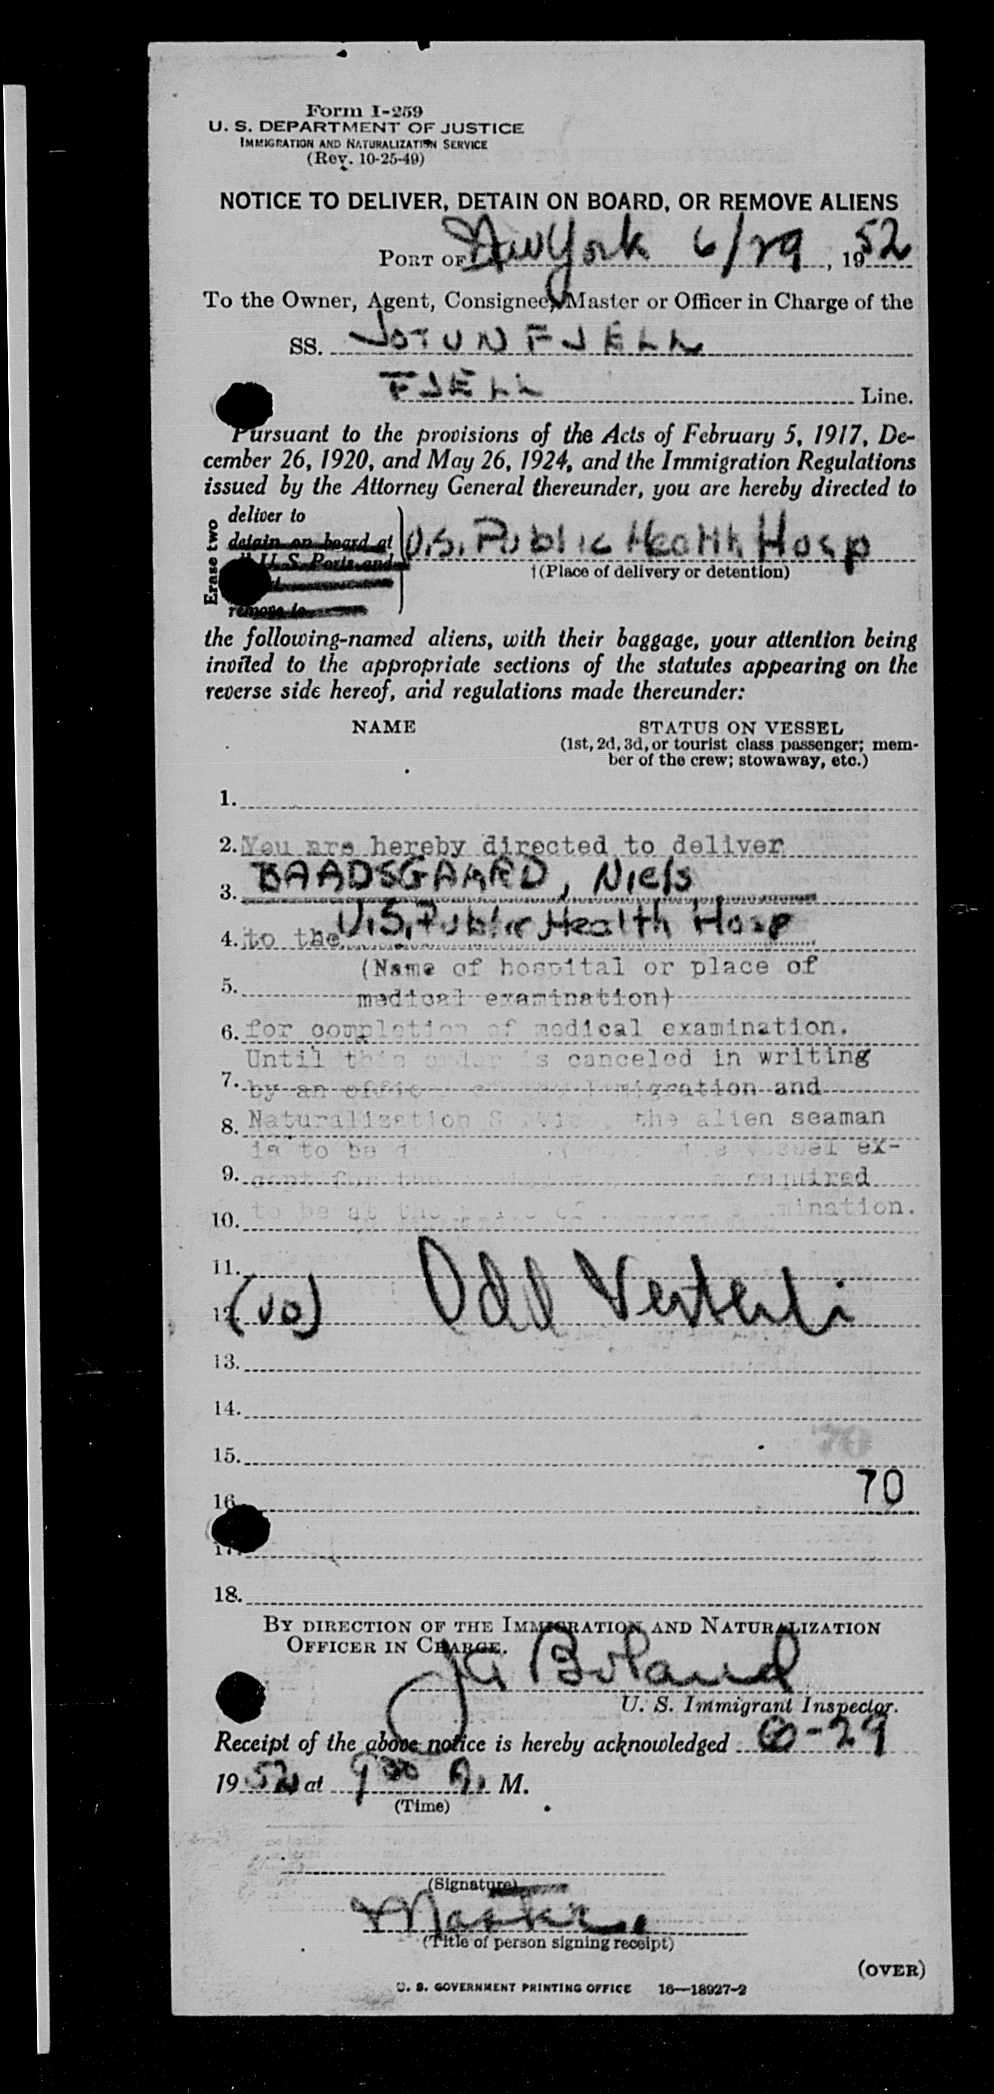 Form I-259
U. S. DEPARTMENT OF JUSTICE
IMMIGRATION AND NATURALIZATION SERVICE
(Rev. 10-25-49)
NOTICE TO DELIVER, DETAIN ON BOARD, OR REMOVE ALIENS
PORT OF New York 6/29, 1952
To the Owner, Agent, Consignee, Master or Officer in Charge of the
SS. JOTUNFJELL
FJELL Line.
Pursuant to the provisions of the Acts of February 5, 1917, De-
cember 26, 1920, and May 26, 1924, and the Immigration Regulations
issued by the Attorney General thereunder, you are hereby directed to
Erase two
deliver to
detain on board at
U. S. Ports and
remove to
U.S. Public Health Hosp
†(Place of delivery or detention)
the following-named aliens, with their baggage, your attention being
invited to the appropriate sections of the statutes appearing on the
reverse side hereof, and regulations made thereunder:
NAME STATUS ON VESSEL
(1st, 2d, 3d, or tourist class passenger; mem-
ber of the crew; stowaway, etc.)
1.
2. You are hereby directed to deliver
3. BAADSGAARD, Niels
4. to the U.S. Public Health Hosp
(Name of hospital or place of
5. medical examination)
6. for completion of medical examination.
Until this order is canceled in writing
7. by an officer of the Immigration and
8. Naturalization Service, the alien seaman
is to be vessel ex-
9. cept for the required
10. to be at the place of mination.
11.
12. (vo) Odd
13.
14.
15. 70
16. 70
17.
18.
BY DIRECTION OF THE IMMIGRATION AND NATURALIZATION
OFFICER IN CHARGE.
JG Boland
U. S. Immigrant Inspector.
Receipt of the above notice is hereby acknowledged 6-29
1952 at 9 00 A. M.
(Time)
(Signature)
Master
(Title of person signing receipt)
(OVER)
U. S. GOVERNMENT PRINTING OFFICE 16—18927-2